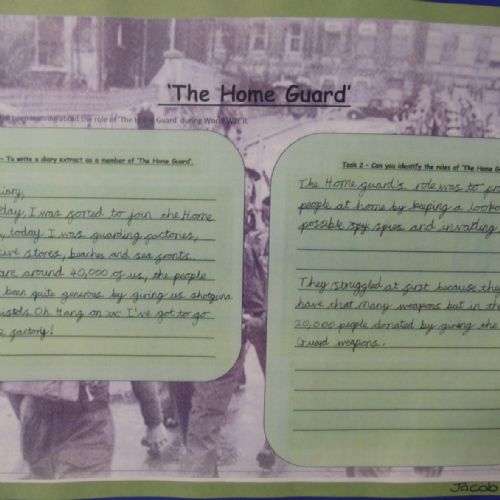 'The Home Guard'
been learning about the role of 'The Home Guard' during World War II.
- To write a diary extract as a member of 'The Home Guard'.
iary,
day, I was sorted to join the Home
, today I was guarding factories,
sive stores, beaches and sea fronts.
are around 40,000 of us, the people
been quite generous by giving us shotguns
istols Oh Hang on xx I've got to go
factory!
Task 2 - Can you identify the roles of 'The Home G
The Home guard's role was to pr
people at home by keeping a looko
possible spy spies and invading
They struggled at first because the
have that many weapons but in the
20,000 people donated by giving the
Guard weapons.
Jacob